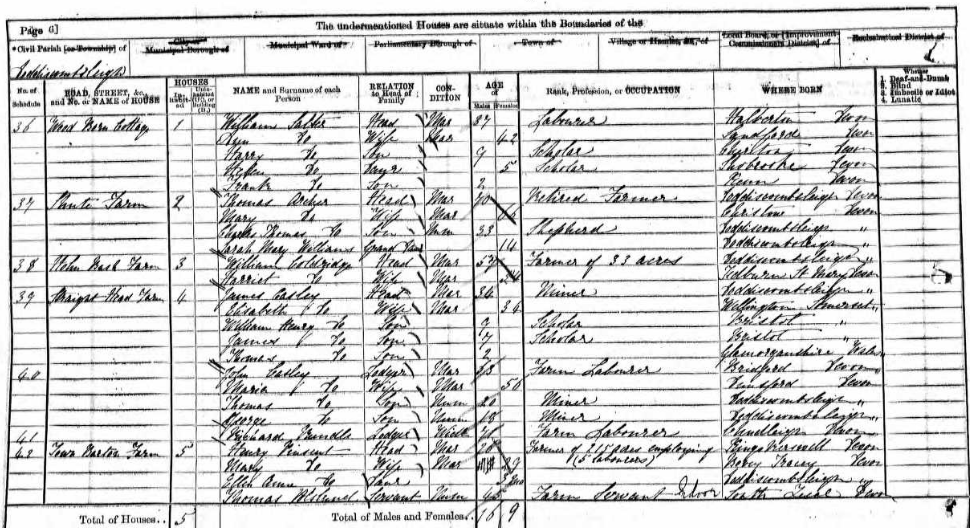 Page 6] The undermentioned Houses are situate within the Boundaries of the
*Civil Parish [or Township] of City or Municipal Borough of Municipal Ward of Parliamentary Borough of Town of Village or Hamlet, &c., of Local Board, or [Improvement Commissioners District] of Ecclesiastical District of
Doddiscombsleigh
No. of Schedule ROAD, STREET, &c., and No. or NAME of HOUSE HOUSES Inhabited Uninhabited (U.), or Building (B.) NAME and Surname of each Person RELATION to Head of Family CONDITION AGE of Males Females Rank, Profession, or OCCUPATION WHERE BORN Whether 1. Deaf-and-Dumb 2. Blind 3. Imbecile or Idiot 4. Lunatic
36 Cottage 1 William Salter Head Mar 37 Labourer Halberton Devon
Ann Do Wife Mar 42 Sandford Devon
Harry Do Son 9 Scholar Devon
Do Daur 5 Scholar Devon
Frank Do Son 2 Devon
37 Farm 2 Thomas Archer Head Mar 70 Retired Farmer Doddiscombsleigh Devon
Mary Do Wife Mar Christow Devon
Thomas Do Son Unm 33 Shepherd Doddiscombsleigh "
Sarah Mary Williams Grand Daur 14 Doddiscombsleigh "
38 Farm 3 William Coldridge Head Mar 57 Farmer of 33 acres Doddiscombsleigh "
Harriet Do Wife Mar Tedburn St Mary Devon
39 Head Farm 4 James Eastley Head Mar 34 Miner Doddiscombsleigh "
Elizabeth Do Wife Mar 34 Wellington Somerset
William Henry Do Son 9 Scholar Bristol "
James Do Son 7 Scholar Bristol "
Thomas Do Son 2 Glamorganshire Wales
40 John Eastley Lodger Mar Farm Labourer Bridford Devon
Maria Do Wife Mar 50 Dunsford Devon
Thomas Do Son Unm 20 Miner Doddiscombsleigh "
George Do Son Unm 18 Miner Doddiscombsleigh "
41 Richard Lodger Farm Labourer Chudleigh Devon
42 Town Barton Farm 5 Henry Pinsent Head Mar Farmer of acres employing Kingskerswell Devon
(5 labourers)
Mary Do Wife Mar Bovey Tracey Devon
Ellen Anne Do Daur Doddiscombsleigh "
Thomas Servant Unm 45 Farm Servant Indoor South Devon
Total of Houses.. 5 Total of Males and Females.. 16 9